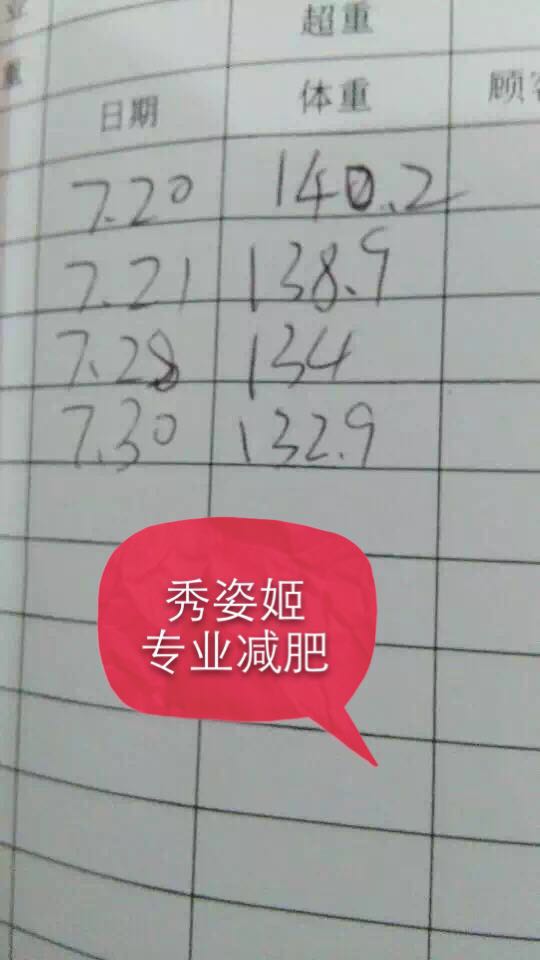 业
超重
重
日期
体重
顾客
7.20 140.2
7.21 138.9
7.28 134
7.30 132.9
秀姿姬
专业减肥